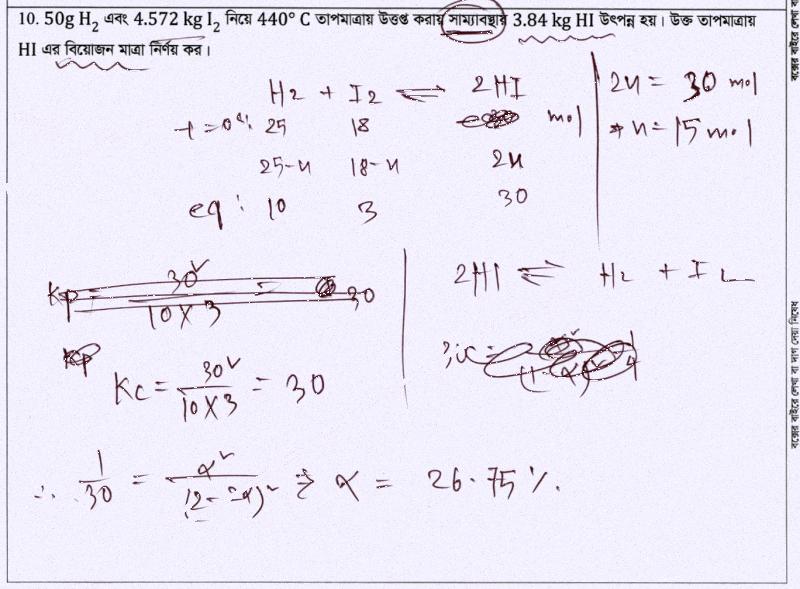 10. 50g H₂ এবং 4.572 kg I₂ নিয়ে 440° C তাপমাত্রায় উত্তপ্ত করায় সাম্যাবস্থায় 3.84 kg HI উৎপন্ন হয়। উক্ত তাপমাত্রায়
HI এর বিয়োজন মাত্রা নির্ণয় কর।
H2 + I2 ⇌ 2HI
t=0: 25 18 mol
25-x 18-x 2x
eq: 10 3 30
2x = 30 mol
x = 15 mol
Kp = 30² / 10×3 = 30
2HI ⇌ H2 + I2
Kc = 30² / 10×3 = 30
∴ 1/30 = α² / (2-2α)² ⇒ α = 26.75%.
বক্সের বাইরে লেখা বা দাগ দেয়া নিষেধ